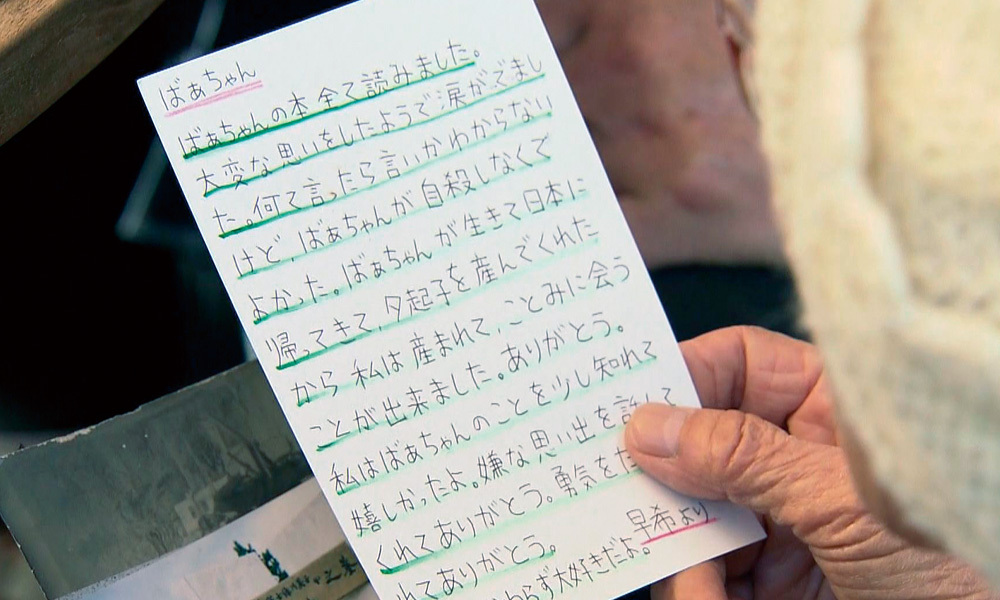 ばぁちゃん
ばぁちゃんの本全て読みました。
大変な思いをしたようで涙がでまし
た。何て言ったら言いかわからない
けど、ばぁちゃんが自殺しなくて
よかった。ばぁちゃんが生きて日本に
帰ってきて、夕起子を産んでくれた
から私は産まれて、ことみに会う
ことが出来ました。ありがとう。
私はばぁちゃんのことを少し知れて
嬉しかったよ。嫌な思い出を
くれてありがとう。勇気を
れてありがとう。
わらず大好きだよ。
早希より